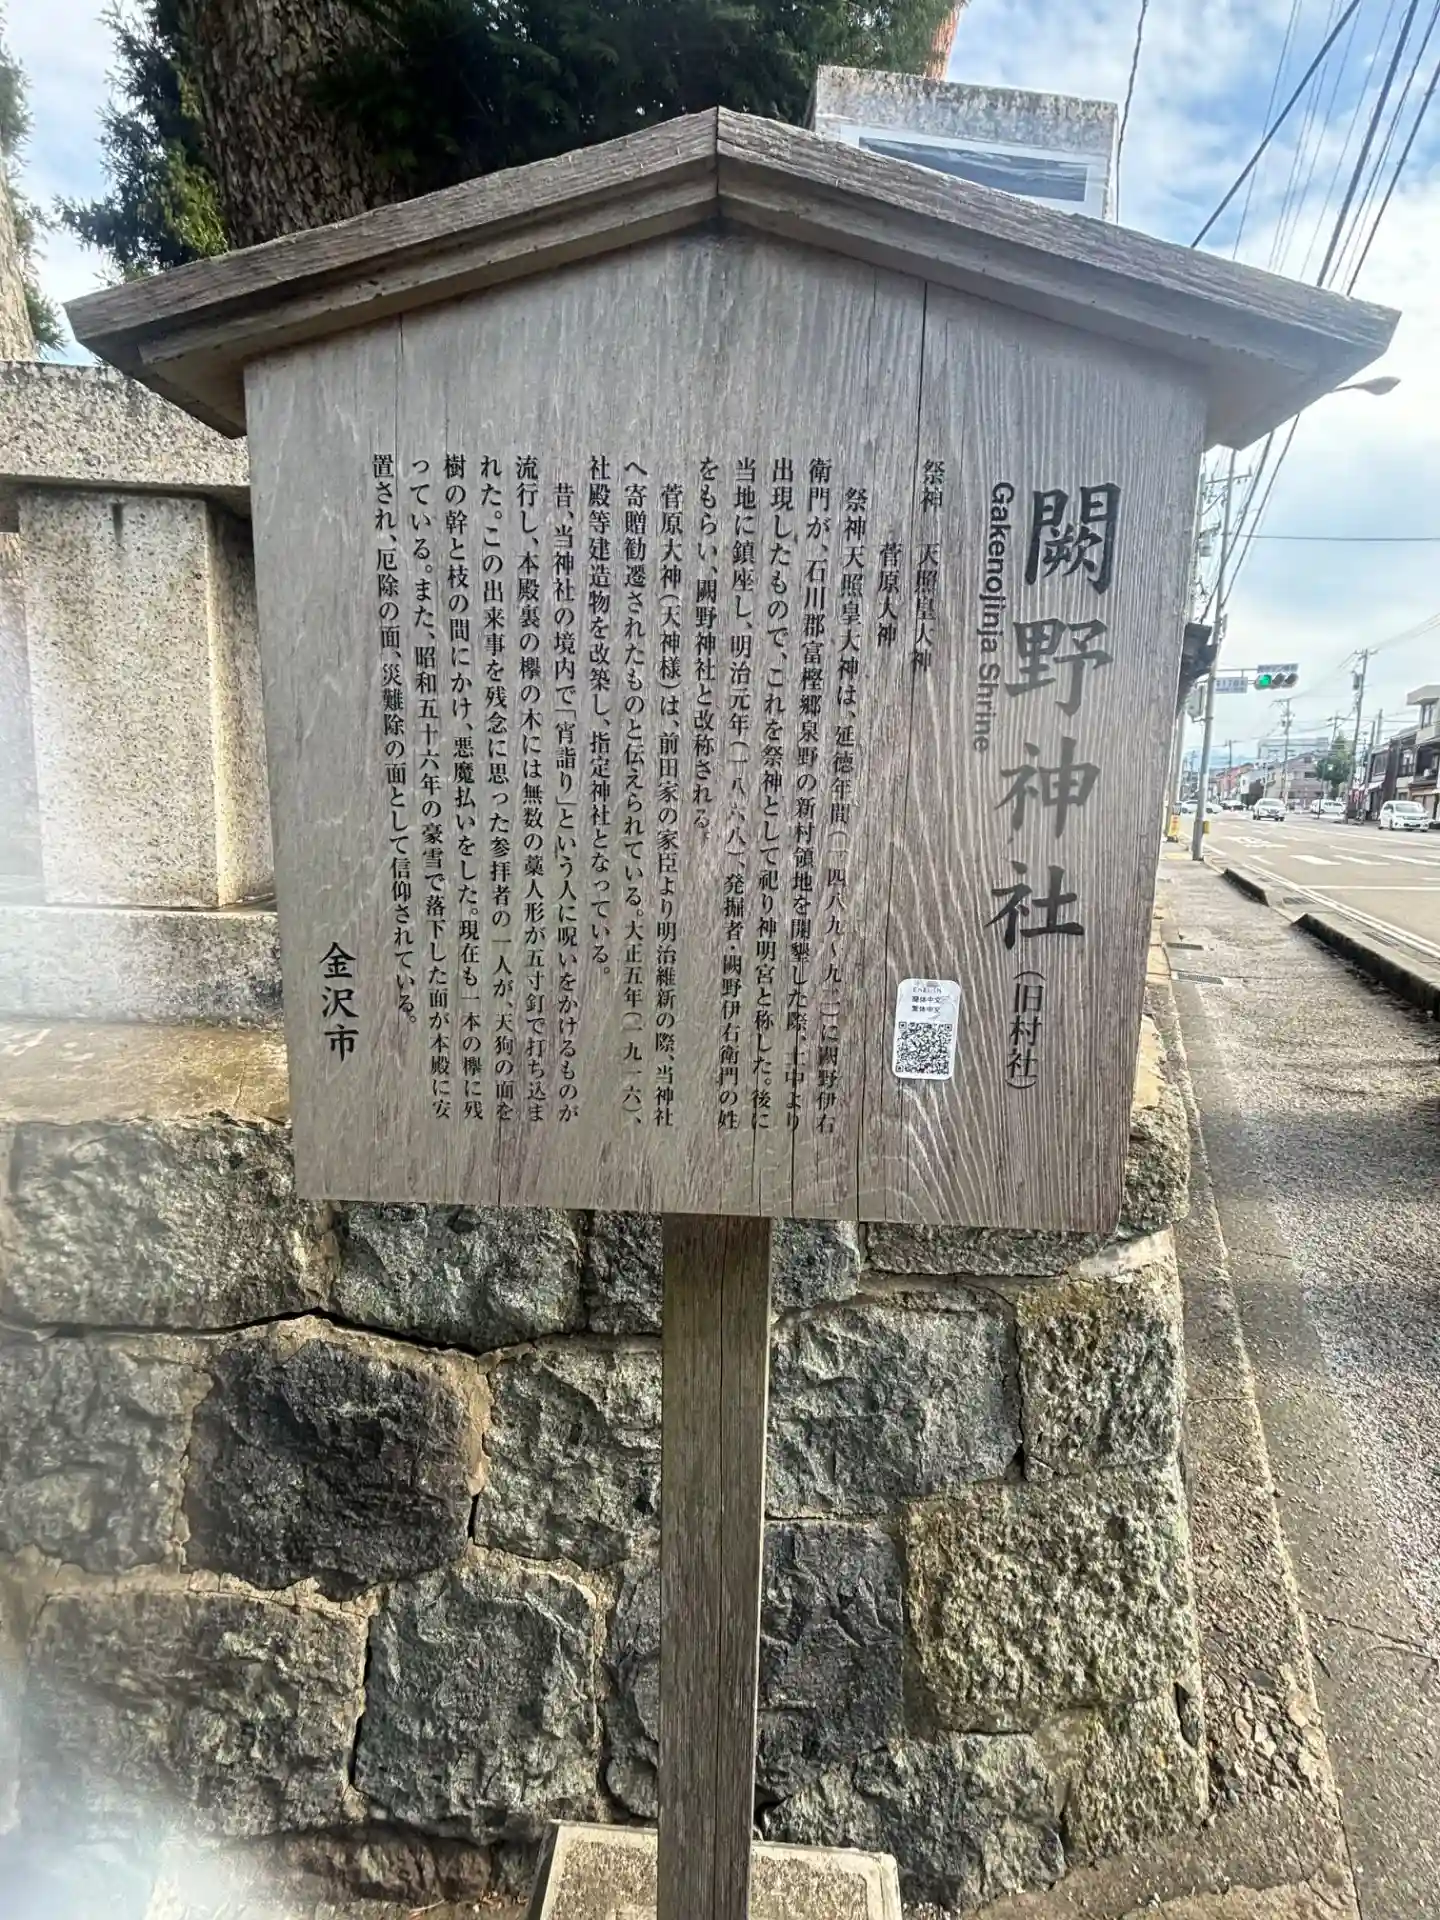 闕野神社（旧村社）
Gakenojinja Shrine
祭神　天照皇大神
菅原大神
祭神天照皇大神は、延徳年間（一四八九～九二）に闕野伊右
衛門が、石川郡富樫郷泉野の新村領地を開墾した際、土中より
出現したもので、これを祭神として祀り神明宮と称した。後に
当地に鎮座し、明治元年（一八六八）、発掘者・闕野伊右衛門の姓
をもらい、闕野神社と改称される。
菅原大神（天神様）は、前田家の家臣より明治維新の際、当神社
へ寄贈勧遷されたものと伝えられている。大正五年（一九一六）、
社殿等建造物を改築し、指定神社となっている。
昔、当神社の境内で「宵詣り」という人に呪いをかけるものが
流行し、本殿裏の欅の木には無数の藁人形が五寸釘で打ち込ま
れた。この出来事を残念に思った参拝者の一人が、天狗の面を
樹の幹と枝の間にかけ、悪魔払いをした。現在も一本の欅に残
っている。また、昭和五十六年の豪雪で落下した面が本殿に安
置され、厄除の面、災難除の面として信仰されている。
金沢市
ENGLISH
簡体中文
繁体中文